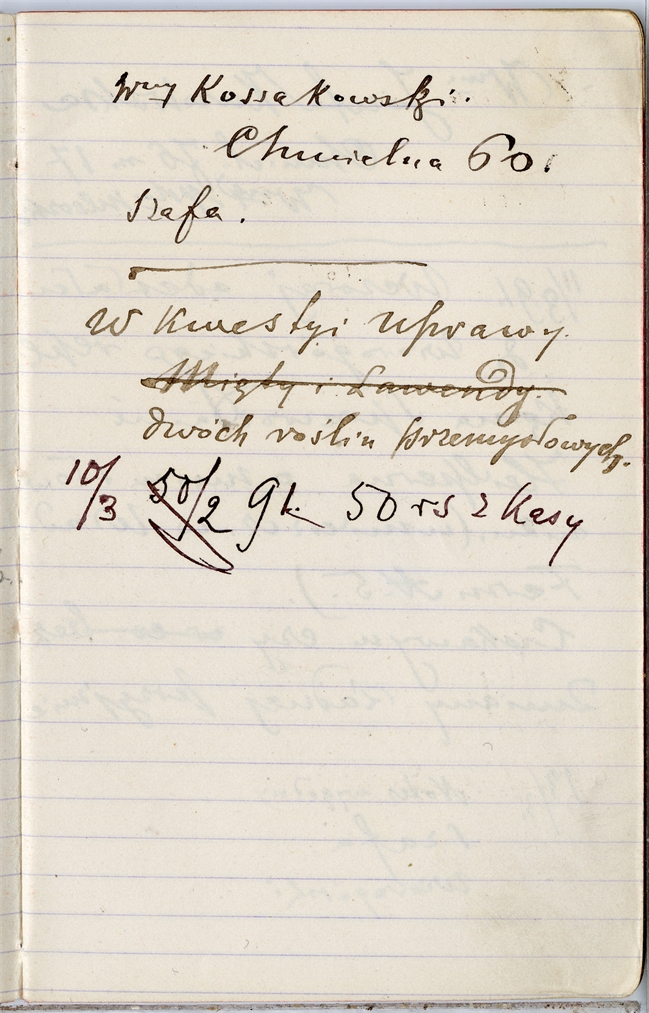 Wny Kossakowski.
Chmielna 60.
Szafa.
W kwestyi uprawy
Mięty i Lawendy.
dwóch roślin przemysłowych.
10/3 50/2 50 rs z Kasy